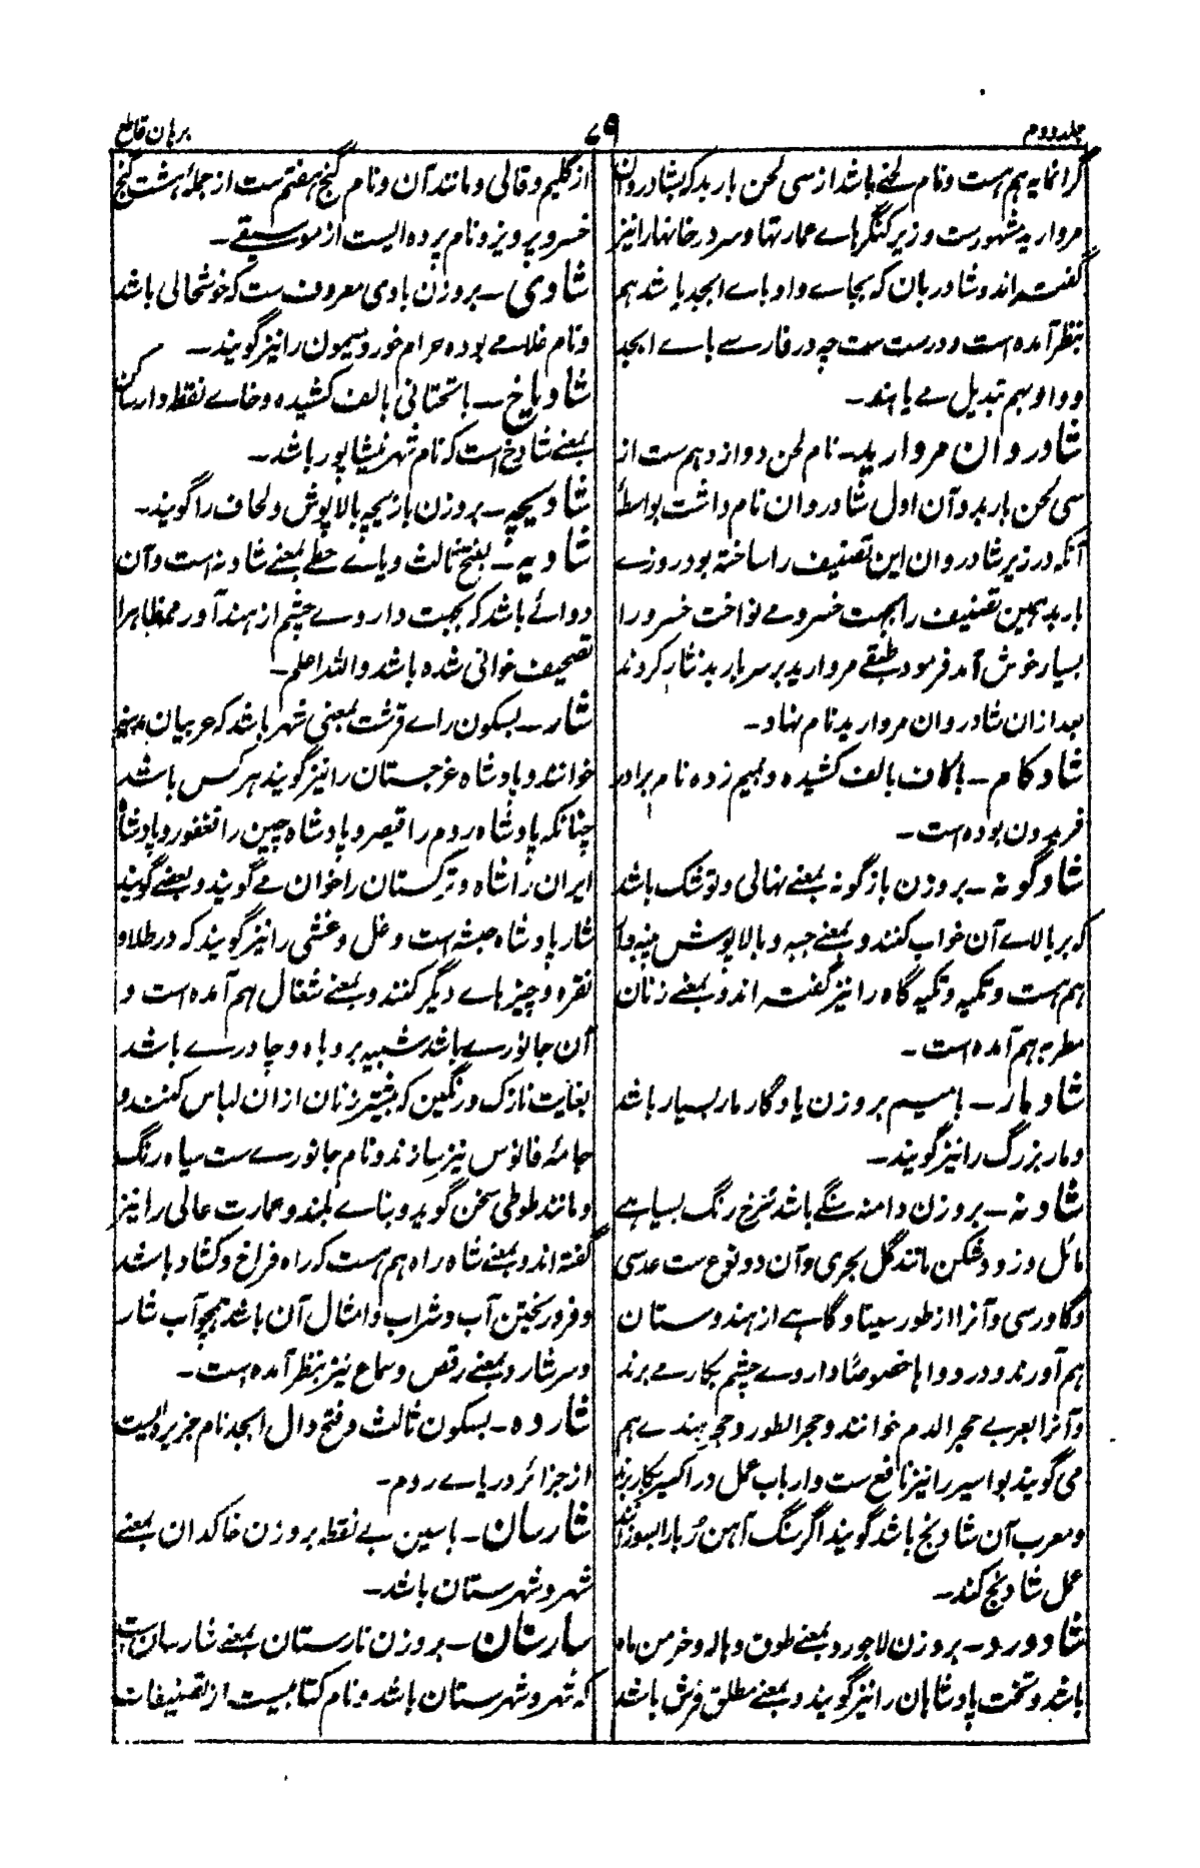 جلد دوم
۷۹
برہان قاطع
گرانمایہ ہم ہست و نام لحنے باشد از سی لحن باربد کہ بشادروان
مروارید مشہورست و زیر کنگرہاے عمارتها و سردر خانها را نیز
گفتہ اند و شادربان کہ بجاے واو باے ابجد باشد ہم
بنظر آمدہ است و درست ست چہ در فارسے باے ابجد
و واو بہم تبدیل مے یابند۔
شادروان مروارید۔ نام لحن دوازدہم ست از
سی لحن باربد و آن اول شادروان نام داشت بواسطۂ
آنکہ در زیر شادروان این تصنیف را ساختہ بود روزے
باربد ہمین تصنیف را بجہت خسرو مے نواخت خسرو را
بسیار خوش آمد فرمود طبقے مروارید بر سر باربد نثار کردند
بعد ازان شادروان مروارید نام نهاد۔
شادکام۔ باکاف بالف کشیدہ و بمیم زدہ نام برادر
فریدون بودہ است۔
شادگونہ۔ بروزن بازگونہ بمعنے نهالی و توشک باشد
کہ بر بالاے آن خواب کنند و بمعنے جبہ و بالاپوش پنبہ دار
ہم ہست و تکیہ و تکیہ گاہ را نیز گفتہ اند و بمعنے زنان
مطربہ ہم آمدہ است۔
شادمار۔ بامیم بروزن یادگار مار بسیار باشد
و مار بزرگ را نیز گویند۔
شادنہ۔ بروزن دامنہ سنگے باشد سُرخ رنگ بسیاہے
مائل و زود شکن مانند گل بحری و آن دو نوع ست عدسی
و گاورسی و آنرا از طور سینا و گاہے از ہندوستان
ہم آورند و در دواہا خصوصًا داروے چشم بکار مے برند
و آنرا بعربے حجر الدم خوانند و حجر الطور و حجر ہندے ہم
می گویند بواسیر را نیز نافع ست و ارباب عمل در اکسیر بکار برند
و معرب آن شادنج باشد گویند اگر سنگ آہن رُبا را بسوزانند
عمل شادنج کند۔
شادورد۔ بروزن لاجورد بمعنے طوق و ہالہ و خرمن ماہ
باشد و تخت پادشاہان را نیز گویند و بمعنے مطلق فرش باشد
از گلیم و قالی و مانند آن و نام گنج ہفتم ست از جملۂ ہشت گنج
خسرو پرویز و نام پردہ ایست از موسیقے۔
شادی۔ بروزن بادی معروف ست کہ خوشحالی باشد
و نام غلامے بودہ حرام خور و میمون را نیز گویند۔
شادیاخ۔ باتحتانی بالف کشیدہ و خاے نقطہ دار ساکن
بمعنے شادخ است کہ نام شہر نیشاپور باشد۔
شادیچہ۔ بروزن بازیچہ بالاپوش و لحاف را گویند۔
شادیہ۔ بفتح ثالث و یاے حطے بمعنے شادنہ است و آن
دوائے باشد کہ بجہت داروے چشم از ہند آورند ظاہرا
تصحیف خوانی شدہ باشد واللہ اعلم۔
شار۔ بسکون راے قرشت بمعنی شہر باشد کہ عربیان مدینہ
خوانند و پادشاہ غرجستان را نیز گویند ہر کس باشد
چنانکہ پادشاہ روم را قیصر و پادشاہ چین را فغفور و پادشاہ
ایران را شاہ و ترکستان را خوان مے گویند و بعضے گویند
شار پادشاہ حبشہ است و غل و غشی را نیز گویند کہ در طلا و
نقرہ و چیزہاے دیگر کنند و بمعنے شغال ہم آمدہ است و
آن جانورے باشد شبیہ بروباہ و چادرے باشد
بغایت نازک و رنگین کہ بیشتر زنان ازان لباس کنند و
جامۂ فانوس نیز سازند و نام جانورے ست سیاہ رنگ
و مانند طوطی سخن گوید و بناے بلند و عمارت عالی را نیز
گفتہ اند و بمعنے شاہ راہ ہم ہست کہ راہ فراخ و کشادہ باشد
و فرو ریختن آب و شراب و امثال آن باشد ہمچو آب شار
و سرشار و بمعنے رقص و سماع نیز بنظر آمدہ است۔
شاردہ۔ بسکون ثالث و فتح دال ابجد نام جزیرہ ایست
از جزائر دریاے روم۔
شارسان۔ باسین بے نقطہ بروزن خاکدان بمعنے
شہر و شہرستان باشد۔
شارستان۔ بروزن نارستان بمعنے شارسان است
کہ شہر و شہرستان باشد و نام کتابیست از تصنیفات